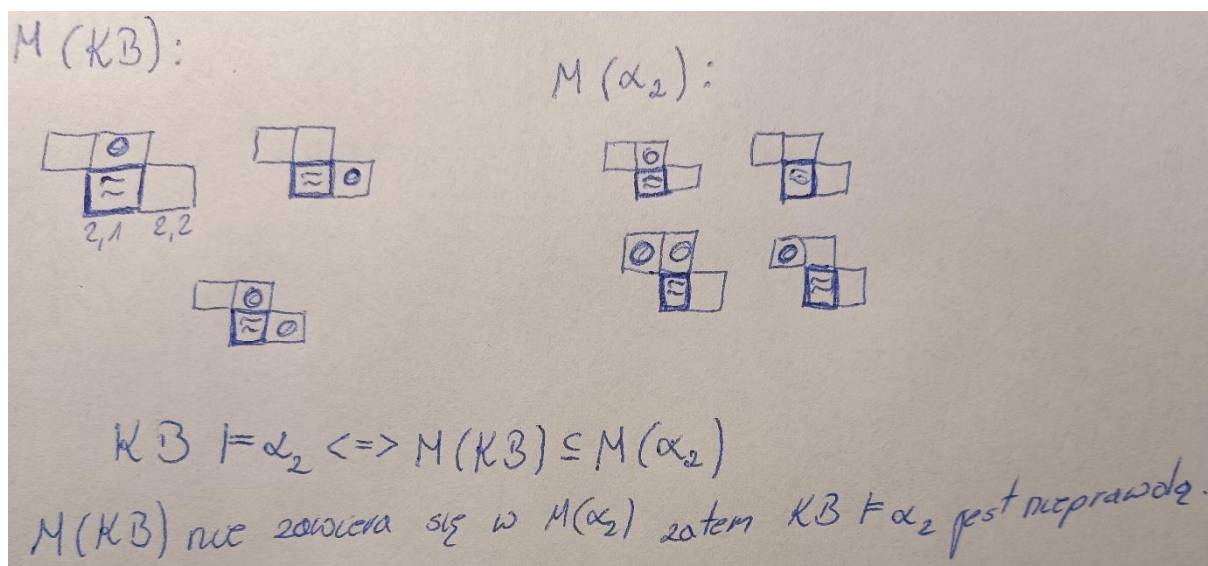 M (KB):
M (α₂):
2,1 2,2
KB ⊨ α₂ <=> M(KB) ⊆ M(α₂)
M(KB) nie zawiera się w M(α₂) zatem KB ⊨ α₂ jest nieprawdą.